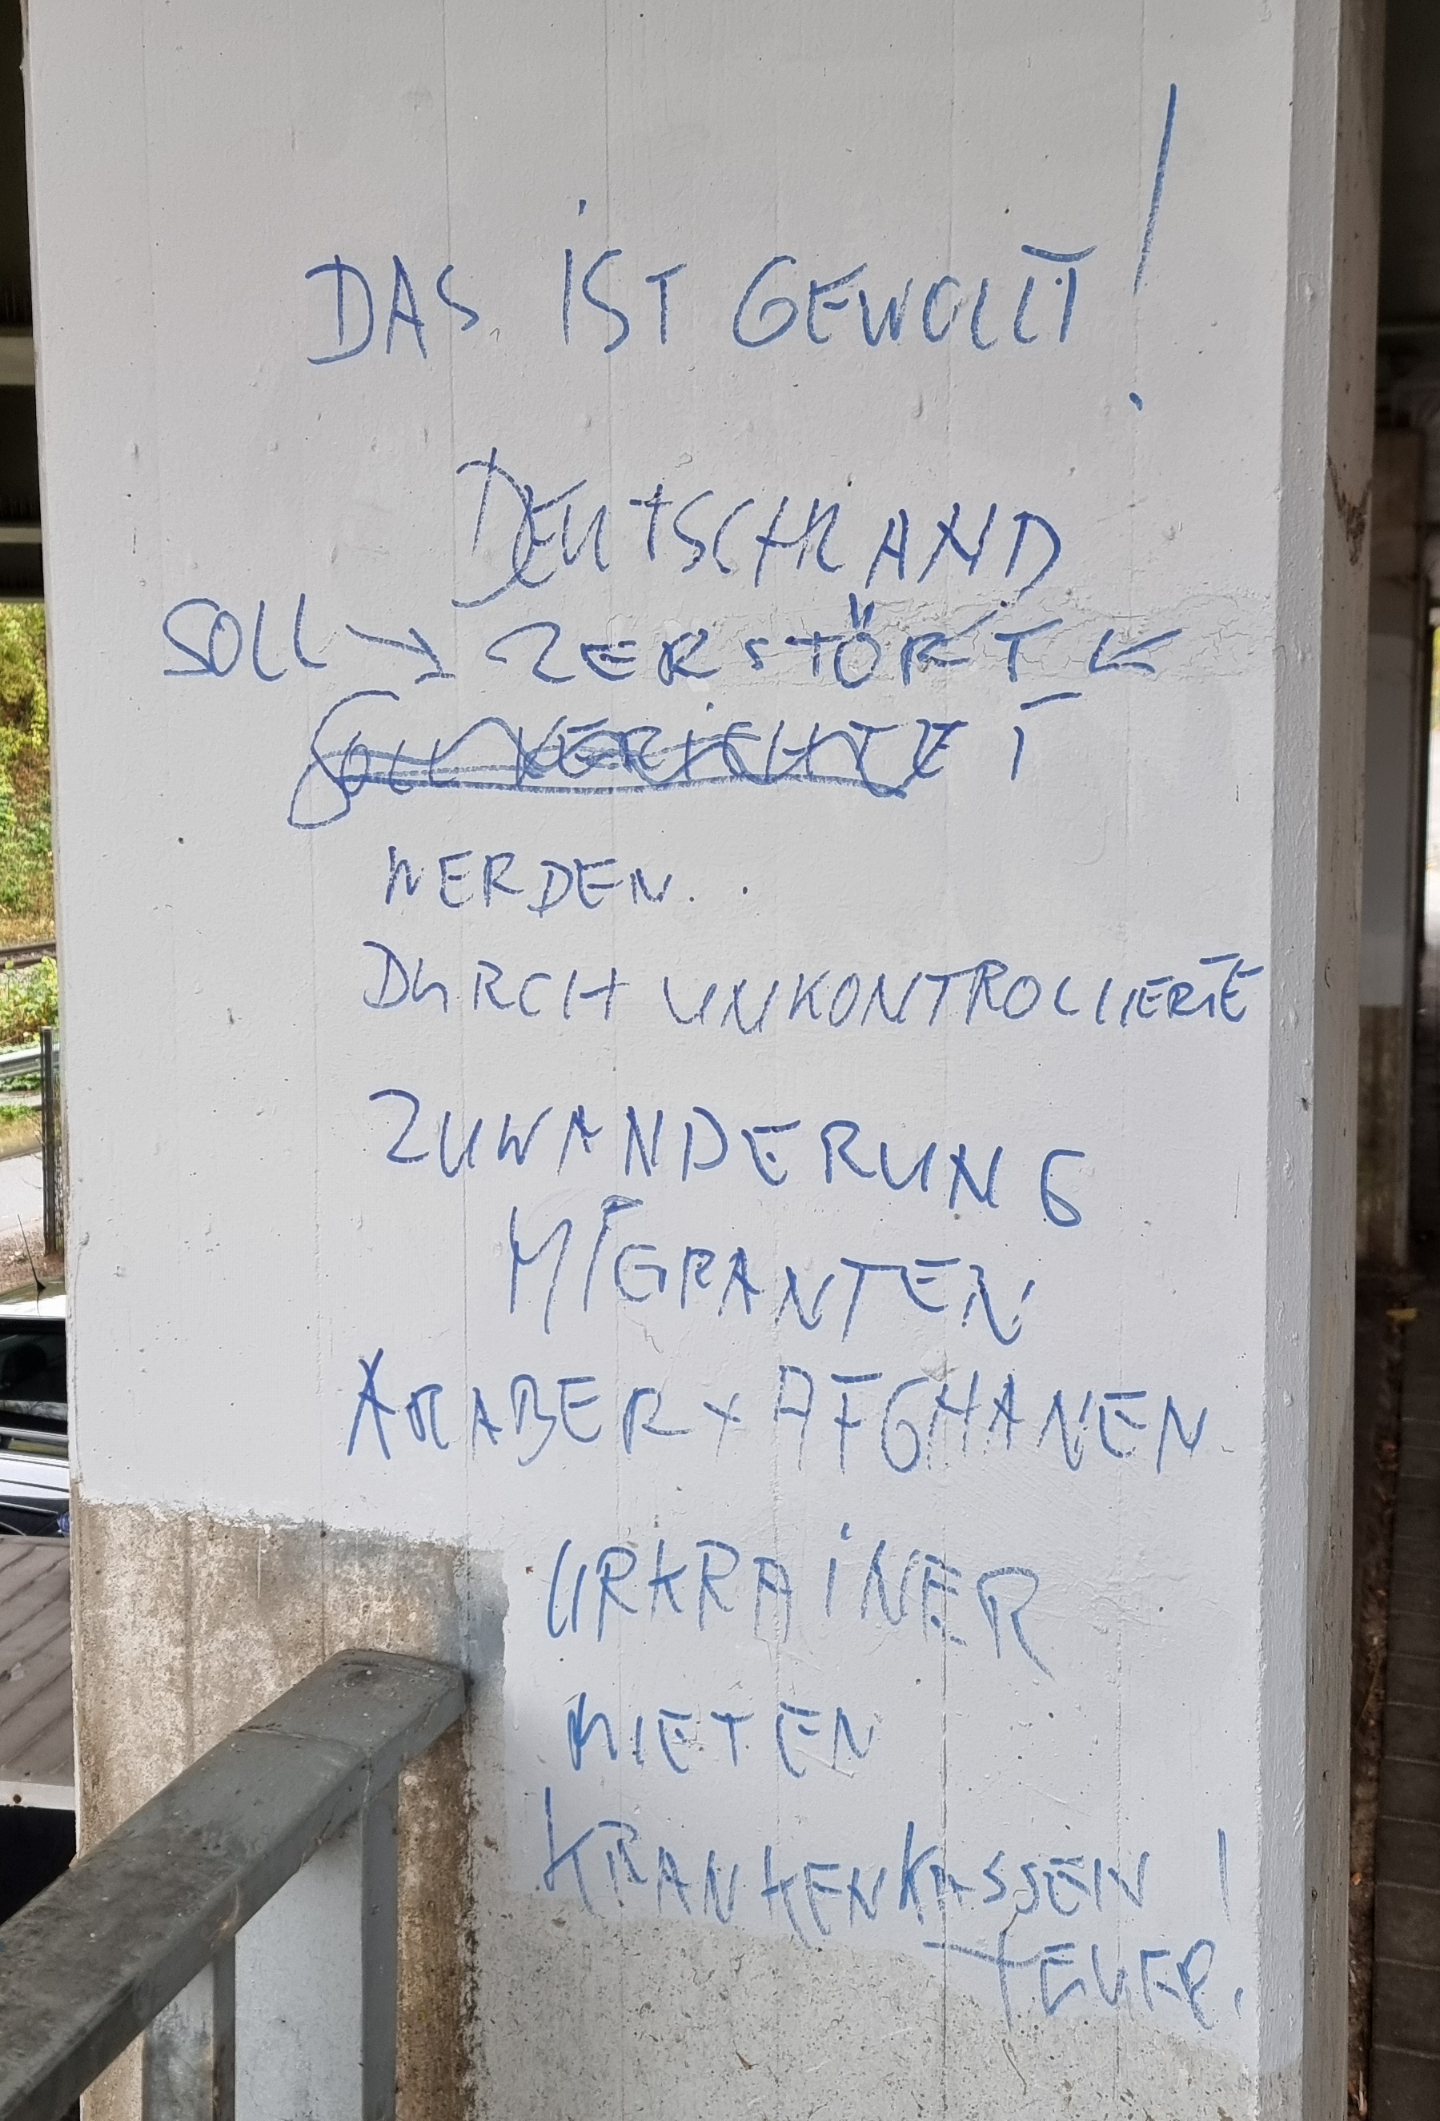 DAS IST GEWOLLT!
DEUTSCHLAND
SOLL → ZERSTÖRT ←
SOLL VERICHTET
WERDEN.
DURCH UNKONTROLLIERTE
ZUWANDERUNG
MIGRANTEN
ARABER + AFGHANEN
URKRAINER
MIETEN
KRANKENKASSEN !
TEUER.